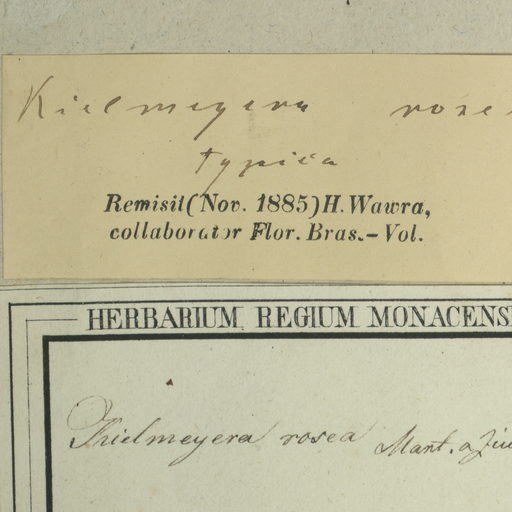 Kielmeyera rose
typica
Remisit (Nov. 1885) H. Wawra,
collaborator Flor. Bras. – Vol.
HERBARIUM REGIUM MONACENS
Kielmeyera rosea Mart. & Zuc